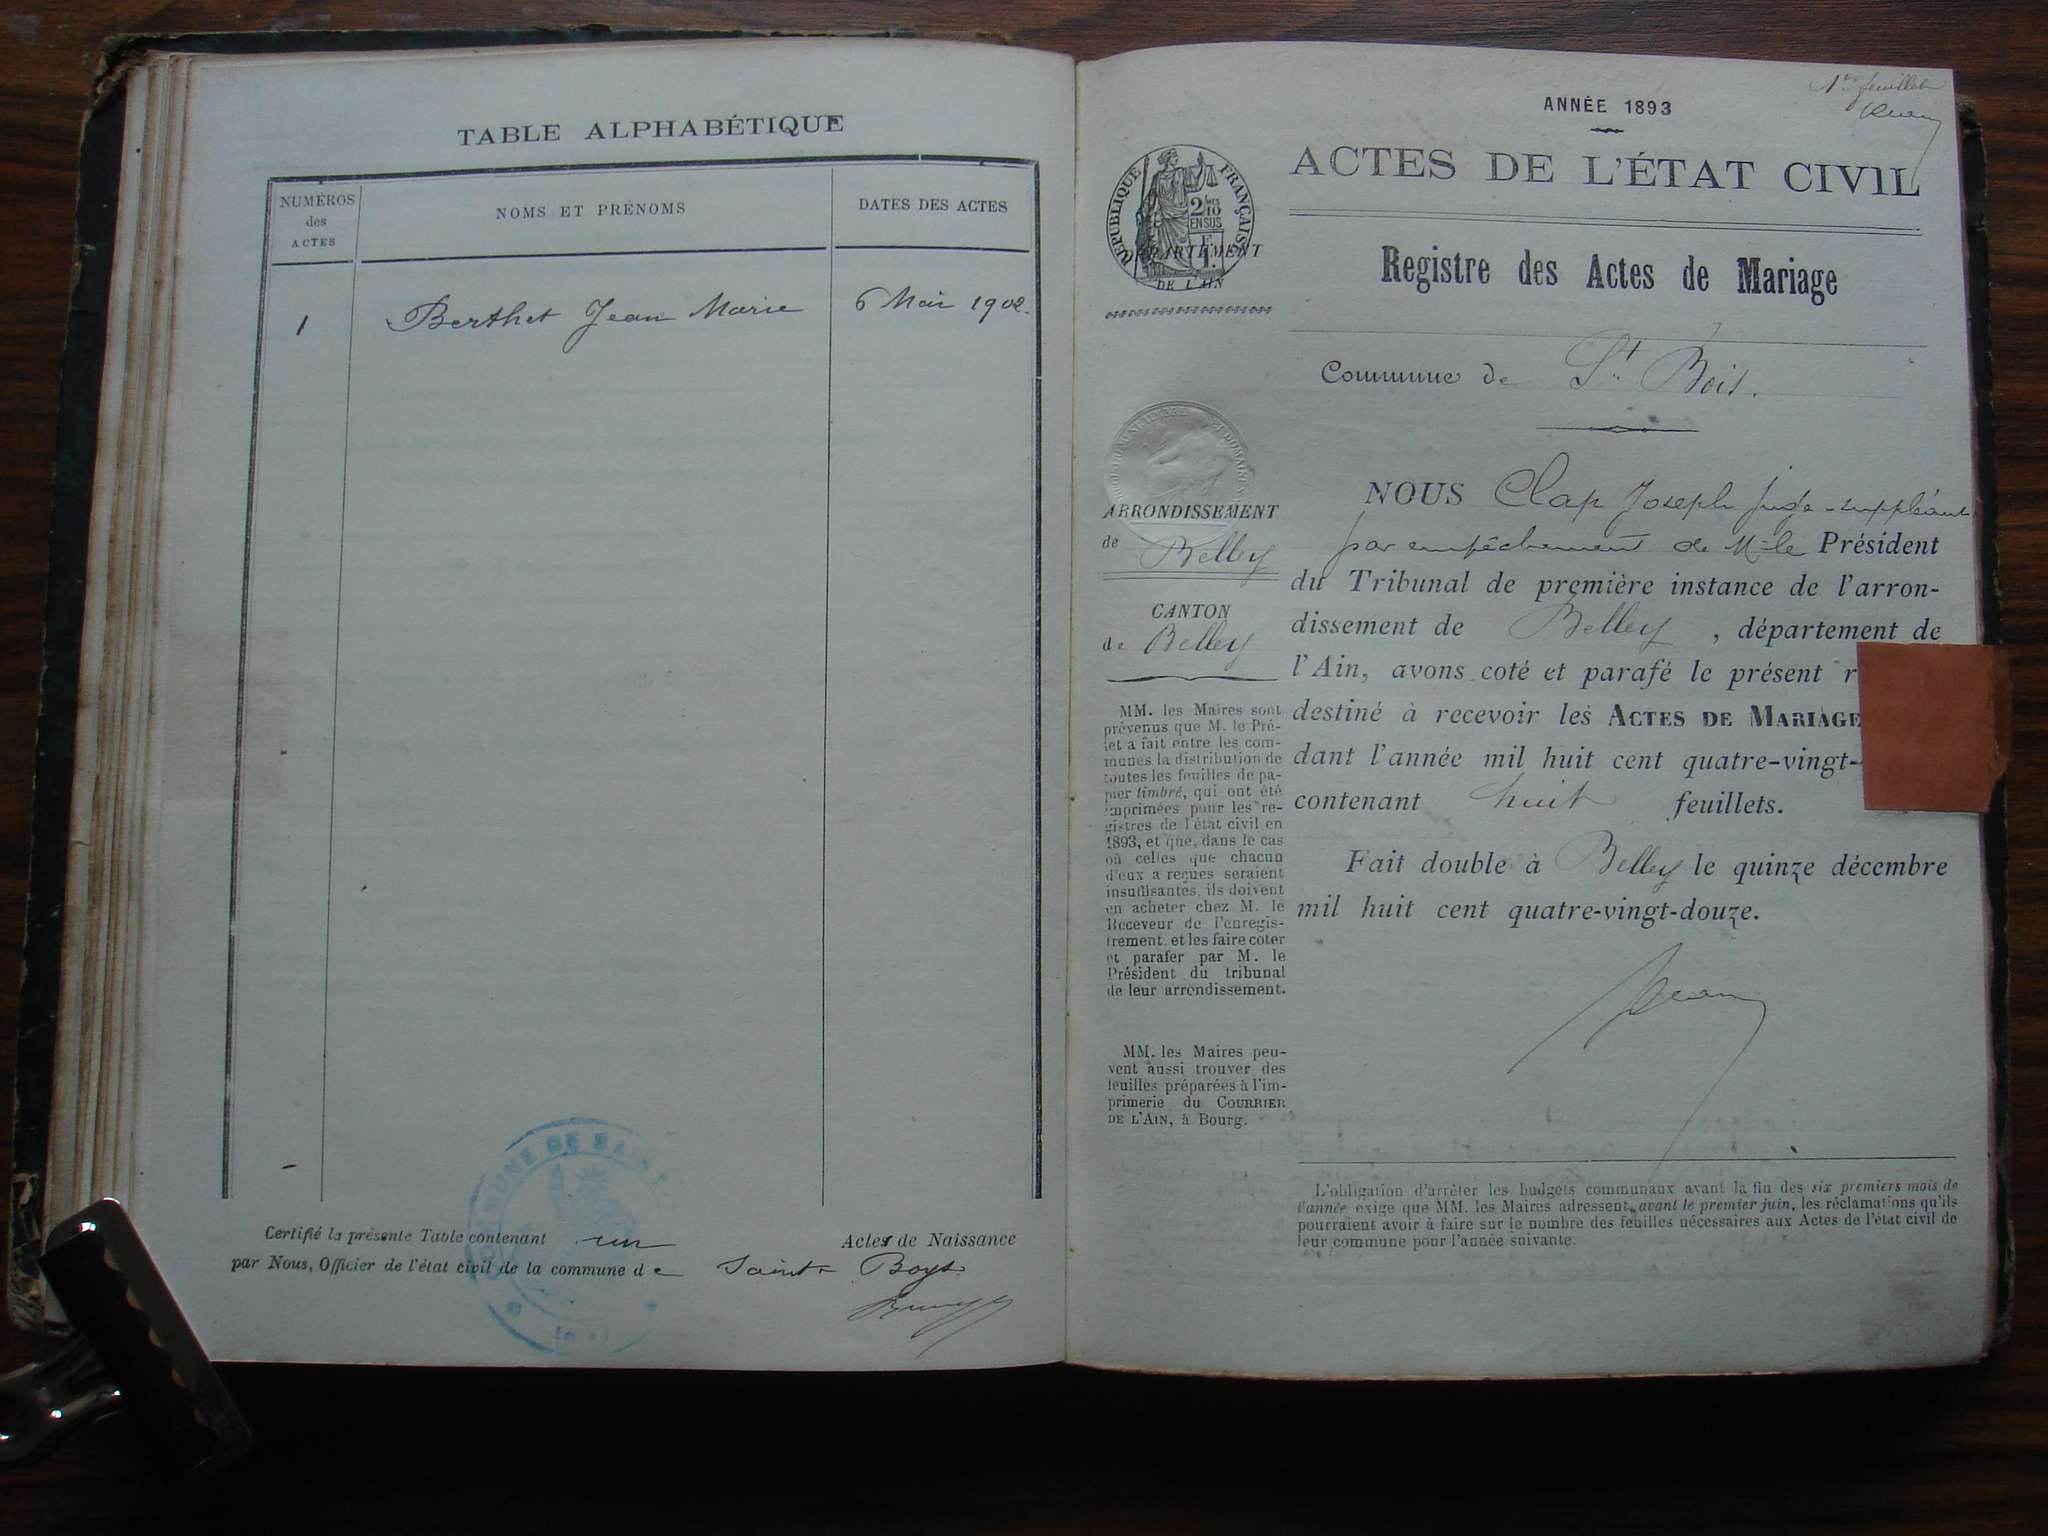 TABLE ALPHABÉTIQUE
NUMÉROS
des
ACTES
NOMS ET PRÉNOMS
DATES DES ACTES
1
Berthet Jean Marie
6 Mai 1902.
COMMUNE DE SAINT
Certifié la présente Table contenant un Actes de Naissance
par Nous, Officier de l'état civil de la commune de Saint Boys
1er feuillet
ANNÉE 1893
ACTES DE L'ÉTAT CIVIL
RÉPUBLIQUE FRANÇAISE
2/10
EN SUS
DÉPARTEMENT
DE L'AIN
Registre des Actes de Mariage
Commune de St Bois.
ARRONDISSEMENT
de Belley
CANTON
de Belley
MM. les Maires sont
prévenus que M. le Pré-
fet a fait entre les com-
munes la distribution de
toutes les feuilles de pa-
pier timbré, qui ont été
imprimées pour les re-
gistres de l'état civil en
1893, et que, dans le cas
où celles que chacun
d'eux a reçues seraient
insuffisantes, ils doivent
en acheter chez M. le
Receveur de l'enregis-
trement et les faire coter
et parafer par M. le
Président du tribunal
de leur arrondissement.
MM. les Maires peu-
vent aussi trouver des
feuilles préparées à l'im-
primerie du COURRIER
DE L'AIN, à Bourg.
NOUS Clap Joseph juge-suppléant
par empêchement de M. le Président
du Tribunal de première instance de l'arron-
dissement de Belley, département de
l'Ain, avons coté et parafé le présent r
destiné à recevoir les ACTES DE MARIAGE
dant l'année mil huit cent quatre-vingt-
contenant huit feuillets.
Fait double à Belley le quinze décembre
mil huit cent quatre-vingt-douze.
L'obligation d'arrêter les budgets communaux avant la fin des six premiers mois de
l'année exige que MM. les Maires adressent, avant le premier juin, les réclamations qu'ils
pourraient avoir à faire sur le nombre des feuilles nécessaires aux Actes de l'état civil de
leur commune pour l'année suivante.